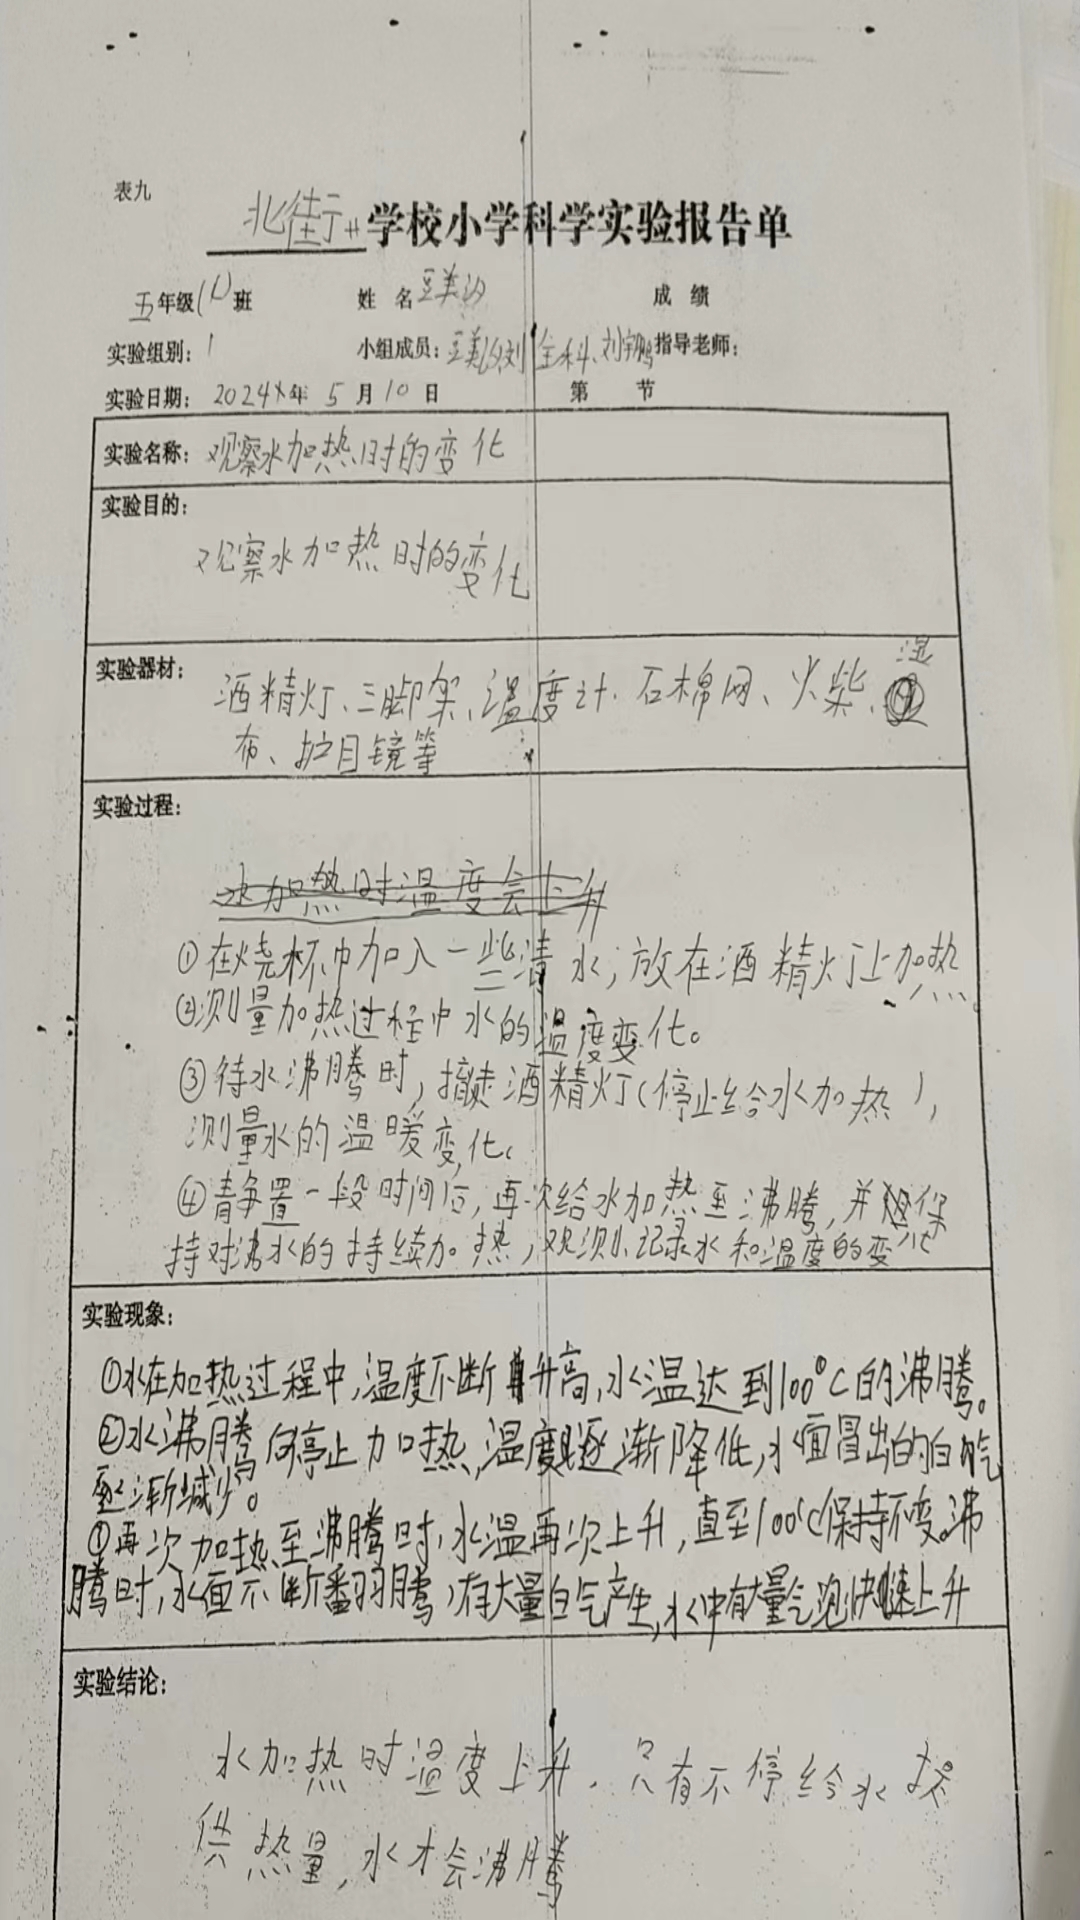 表九
北街 学校小学科学实验报告单
五年级(1)班 姓 名 豆美汐 成 绩
实验组别：1 小组成员：豆美汐、刘 刘宇鹏 指导老师：
实验日期：2024年 5 月 10 日 第 节
实验名称：观察水加热时的变化
实验目的：
观察水加热时的变化
实验器材：
酒精灯、三脚架、温度计、石棉网、火柴、湿
布、护目镜等
实验过程：
水加热时温度会上升
①在烧杯中加入一些清水，放在酒精灯上加热。
②测量加热过程中水的温度变化。
③待水沸腾时，撤走酒精灯（停止给水加热），
测量水的温暖变化。
④静置一段时间后，再次给水加热至沸腾，并保
持对沸水的持续加热，观测、记录水和温度的变化
实验现象：
①水在加热过程中，温度不断升高，水温达到100°C的沸腾。
②水沸腾向停止加热，温度逐渐降低，水面冒出的白气
逐渐减少。
①再次加热至沸腾时，水温再次上升，直至100℃保持不变。沸
腾时，水面不断翻腾，有大量白气产生，水中有大量气泡快速上升
实验结论：
水加热时温度上升，只有不停给水提
供热量，水才会沸腾